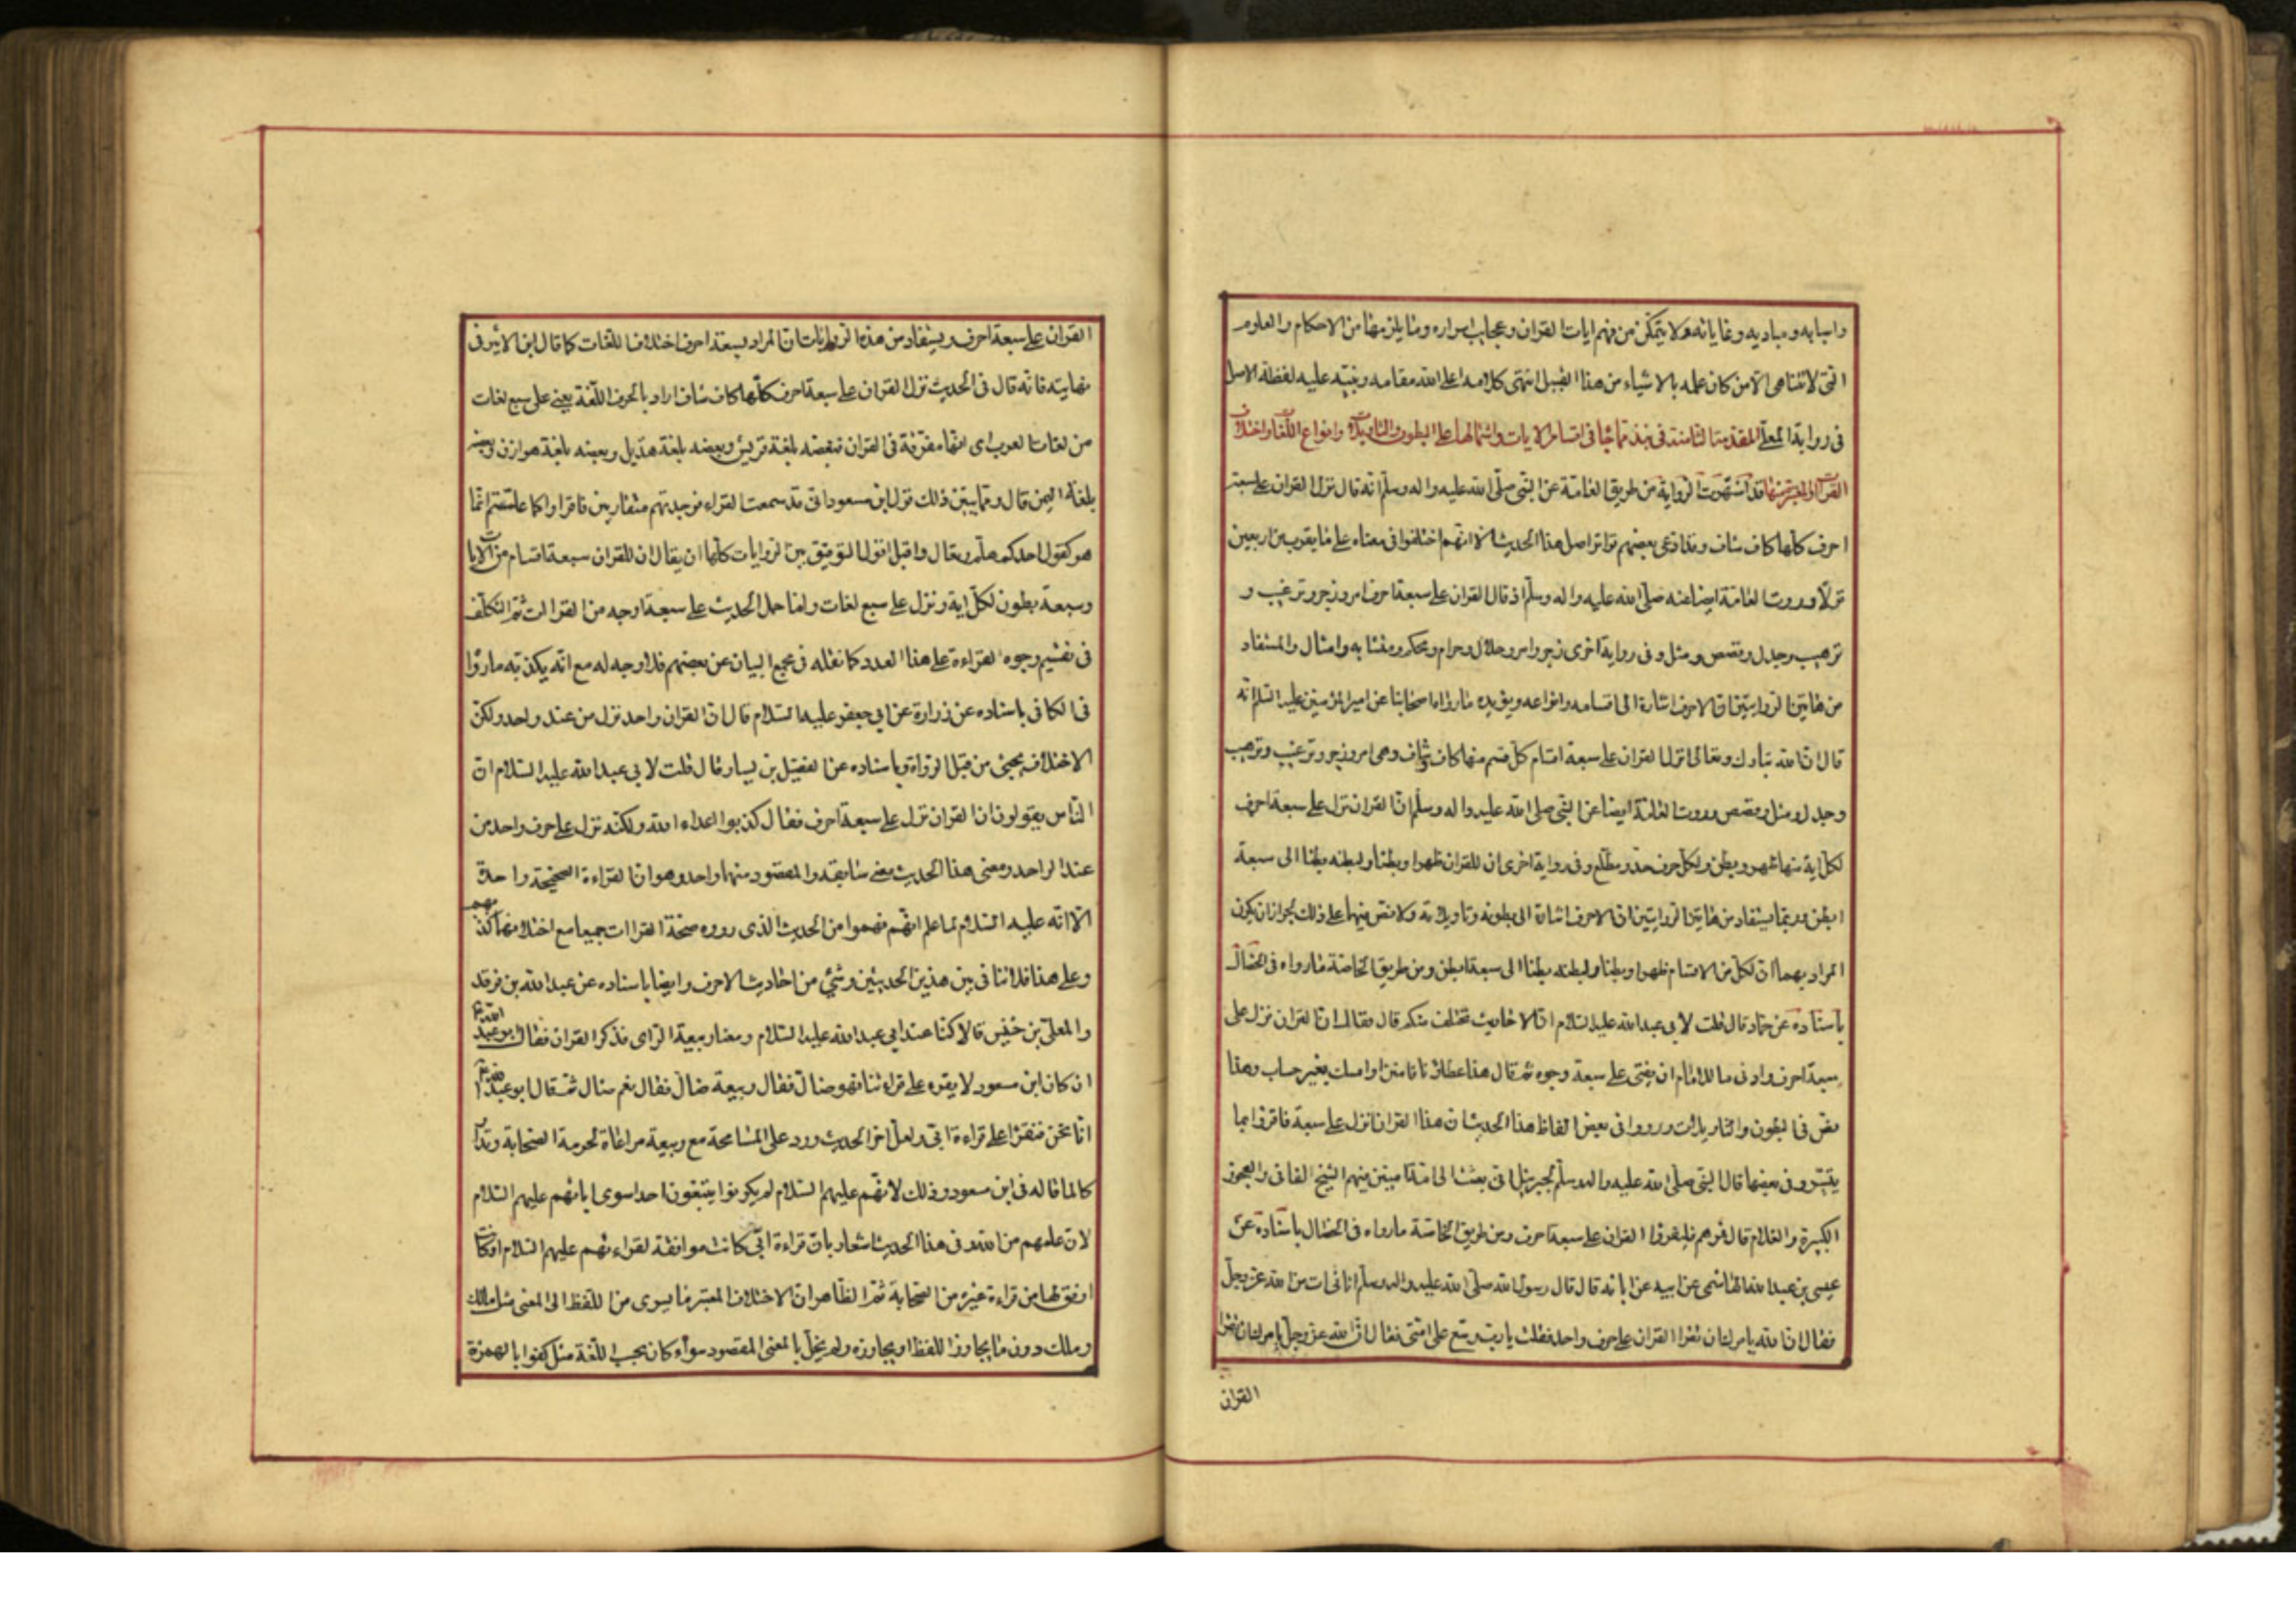 واسبابه ومباديه وغاياته ولا يتمكن من فهم ايات القران وعجايب اسراره وما يلزمها من الاحكام والعلوم
التى لا تتناهى الا من كان علمه بالاشياء من هذا القبيل انتهى كلامه اعلى الله مقامه وينبّه عليه لفظة الاصل
فى رواية المعلّى المقدمة الثامنة فى نبذ مما جاء فى اقسام الايات واشتمالها على البطون والتاويلات وانواع اللغات واختلاف
القراآت والمعتبرة منها قد اشتهرت الرواية من طريق العامّة عن النبىّ صلّى الله عليه واله وسلّم انّه قال نزل القران على سبعة
احرف كلّها كاف شاف وقد ادّعى بعضهم تواتر اصل هذا الحديث الّا انّهم اختلفوا فى معناه على ما يقرب من اربعين
قولًا وروت العامّة ايضا عنه صلّى الله عليه واله وسلّم انه قال القران على سبعة احرف امر وزجر وترغيب و
ترهيب وجدل وقصص ومثل وفى رواية اخرى زجر وامر وحلال وحرام ومحكم ومتشابه وامثال والمستفاد
من هاتين الروايتين انّ الاحرف اشارة الى اقسامه وانواعه ويؤيده ما رواه اصحابنا عن امير المؤمنين عليه السلام انّه
قال انّ الله تبارك وتعالى انزل القران على سبعة اقسام كلّ قسم منها كاف شاف وهى امر وزجر وترغيب وترهيب
وجدل ومثل وقصص وروت العامّة ايضا عن النبىّ صلى الله عليه واله وسلّم انّ القران نزل على سبعة احرف
لكلّ اية منها ظهر وبطن ولكلّ حرف حدّ ومطّلع وفى رواية اخرى ان للقران ظهرا وبطنا ولبطنه بطنا الى سبعة
ابطن وربما يستفاد من هاتين الروايتين انّ الاحرف اشارة الى بطونه وتاويلاته ولا نصّ فيهما على ذلك لجواز ان يكون
المراد بهما انّ لكلّ من الاقسام ظهرا وبطنا ولبطنه بطنا الى سبعة ابطن ومن طريق الخاصّة ما رواه فى الخصال
باسناده عن حمّاد قال قلت لابى عبد الله عليه السلام انّ الاحاديث تختلف منكم قال فقال انّ القران نزل على
سبعة احرف وادنى ما للامام ان يفتى على سبعة وجوه ثمّ قال هذا عطاؤنا فامنن او امسك بغير حساب وهذا
نصّ فى البطون والتاويلات ورووا فى بعض الفاظ هذا الحديث ان هذا القران انزل على سبعة فاقرؤا بما
يتيسّر وفى بعضها قال النبى صلّى الله عليه واله وسلّم لجبرئيل انّى بعثت الى امّة اميّين فيهم الشيخ الفانى والعجوز
الكبيرة والغلام قال فمرهم فليقرؤا القران على سبعة احرف ومن طريق الخاصّة ما رواه فى الخصال باسناده عن
عيسى بن عبد الله الهاشمى عن ابيه عن ابائه قال قال رسول الله صلّى الله عليه واله وسلّم اتانى ات من الله عزّ وجلّ
فقال انّ الله يامرك ان تقرا القران على حرف واحد فقلت يا ربّ وسّع على امّتى فقال انّ الله عزّ وجلّ يامرك ان تقرا
القران
القران على سبعة احرف ويستفاد من هذه الروايات انّ المراد بسبعة احرف اختلاف اللّغات كما قال ابن الاثير فى
نهايته فانّه قال فى الحديث نزل القران على سبعة احرف كلّها كاف شاف اراد بالحرف اللّغة يعنى على سبع لغات
من لغات العرب اى انّها مفرّقة فى القران فبعضه بلغة قريش وبعضه بلغة هذيل وبعضه بلغة هوازن وبعضه
بلغة اليمن قال ومما يبيّن ذلك قول ابن مسعود انّى قد سمعت القراء فوجدتهم متقاربين فاقراوا كما علّمتم انّما
هو كقول احدكم هلمّ وتعال واقبل اقول التوفيق بين الروايات كلّها ان يقال ان للقران سبعة اقسام من الايات
وسبعة بطون لكلّ اية ونزل على سبع لغات وامّا حمل الحديث على سبعة اوجه من القراات ثمّ التكلّف
فى تقسيم وجوه القراءة على هذا العدد كما نقله فى مجمع البيان عن بعضهم فلا وجه له مع انّه يكذّبه ما رواه
فى الكافى باسناده عن زرارة عن ابى جعفر عليه السّلام قال انّ القران واحد نزل من عند واحد ولكنّ
الاختلاف يجئ من قبل الرّواة وباسناده عن الفضيل بن يسار قال قلت لابى عبد الله عليه السّلام انّ
النّاس يقولون انّ القران نزل على سبعة احرف فقال كذبوا اعداء الله ولكنّه نزل على حرف واحد من
عند الواحد ومعنى هذا الحديث معنى سابقه والمقصود منهما واحد وهو ان القراءة الصّحيحة واحدة
الّا انّه عليه السّلام لما علم انّهم فهموا من الحديث الّذى رووه صحّة القراات جميعا مع اختلافها كذّبهم
وعلى هذا فلا تنافى بين هذين الحديثين وشئ من احاديث الاحرف وايضا باسناده عن عبد الله بن فرقد
والمعلّى بن خنيس قالا كنّا عند ابى عبد الله عليه السّلام ومعنا ربيعة الرّاى فذكر القران فقال ابو عبد الله ع
ان كان ابن مسعود لا يقرء على قراءتنا فهو ضالّ فقال ربيعة ضالّ فقال نعم ضال ثمّ قال ابو عبد الله ع
امّا نحن فنقرا على قراءة ابىّ ولعلّ اخر الحديث ورد على المسامحة مع ربيعة مراعاة لحرمة الصّحابة وتدارك
كا لما قاله فى ابن مسعود وذلك لانّهم عليهم السّلام لم يكونوا يتّبعون احدا سوى ابائهم عليهم السّلام
لانّ علمهم من الله وفى هذا الحديث اشعار بانّ قراءة ابىّ كانت موافقة لقراءتهم عليهم السّلام او كانت
اوفق لها من قراءة غيره من الصّحابة ثمّ الظّاهر انّ الاختلاف المعتبر ما يسرى من اللّفظ الى المعنى مثل مالك
وملك دون ما يجاوز اللفظ او يجاوزه ولم يخلّ بالمعنى المقصود سواء كان بحسب اللّغة مثل كفوا بالهمزة